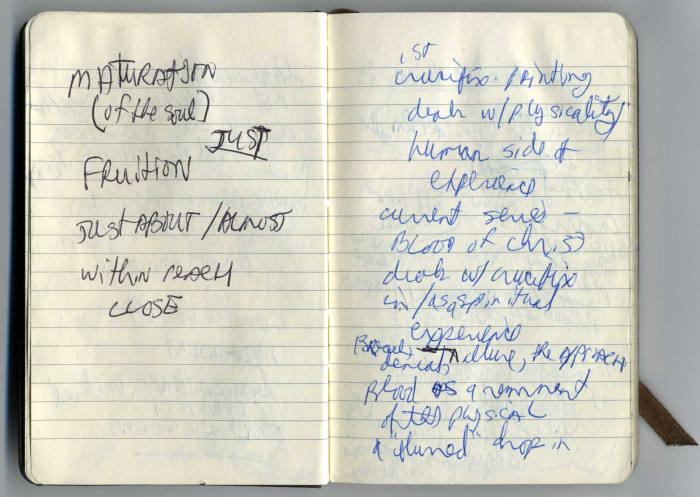 MATURATION
(of the soul)
JUST
FRUITION
JUST ABOUT / ALMOST
within REACH
CLOSE
1st
crucifix painting
deals w/ physicality/
human side of
experience
current series –
Blood of Christ
deals w/ crucifix
in/as a spiritual
experience
the APPROACH
Blood as a remnant
of the physical
drop in